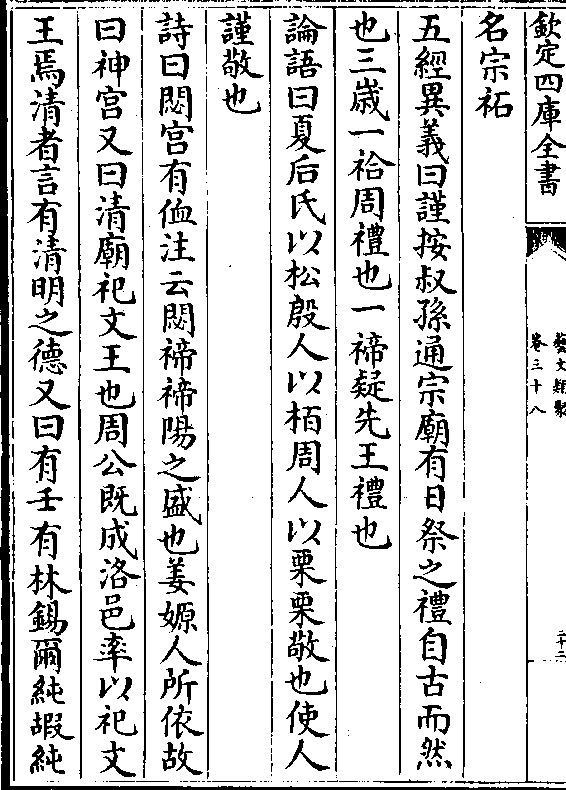 欽定四庫全書
藝文類聚
卷三十八
二十三
名宗祏
五經異義曰謹按叔孫通宗廟有日祭之禮自古而然
也三歲一祫周禮也一禘疑先王禮也
論語曰夏后氏以松殷人以栢周人以栗栗敬也使人
謹敬也
詩曰閟宮有侐注云閟禘禘陽之盛也姜嫄人所依故
曰神宮又曰清廟祀文王也周公既成洛邑率以祀文
王焉清者言有清明之德又曰有壬有林錫爾純嘏純